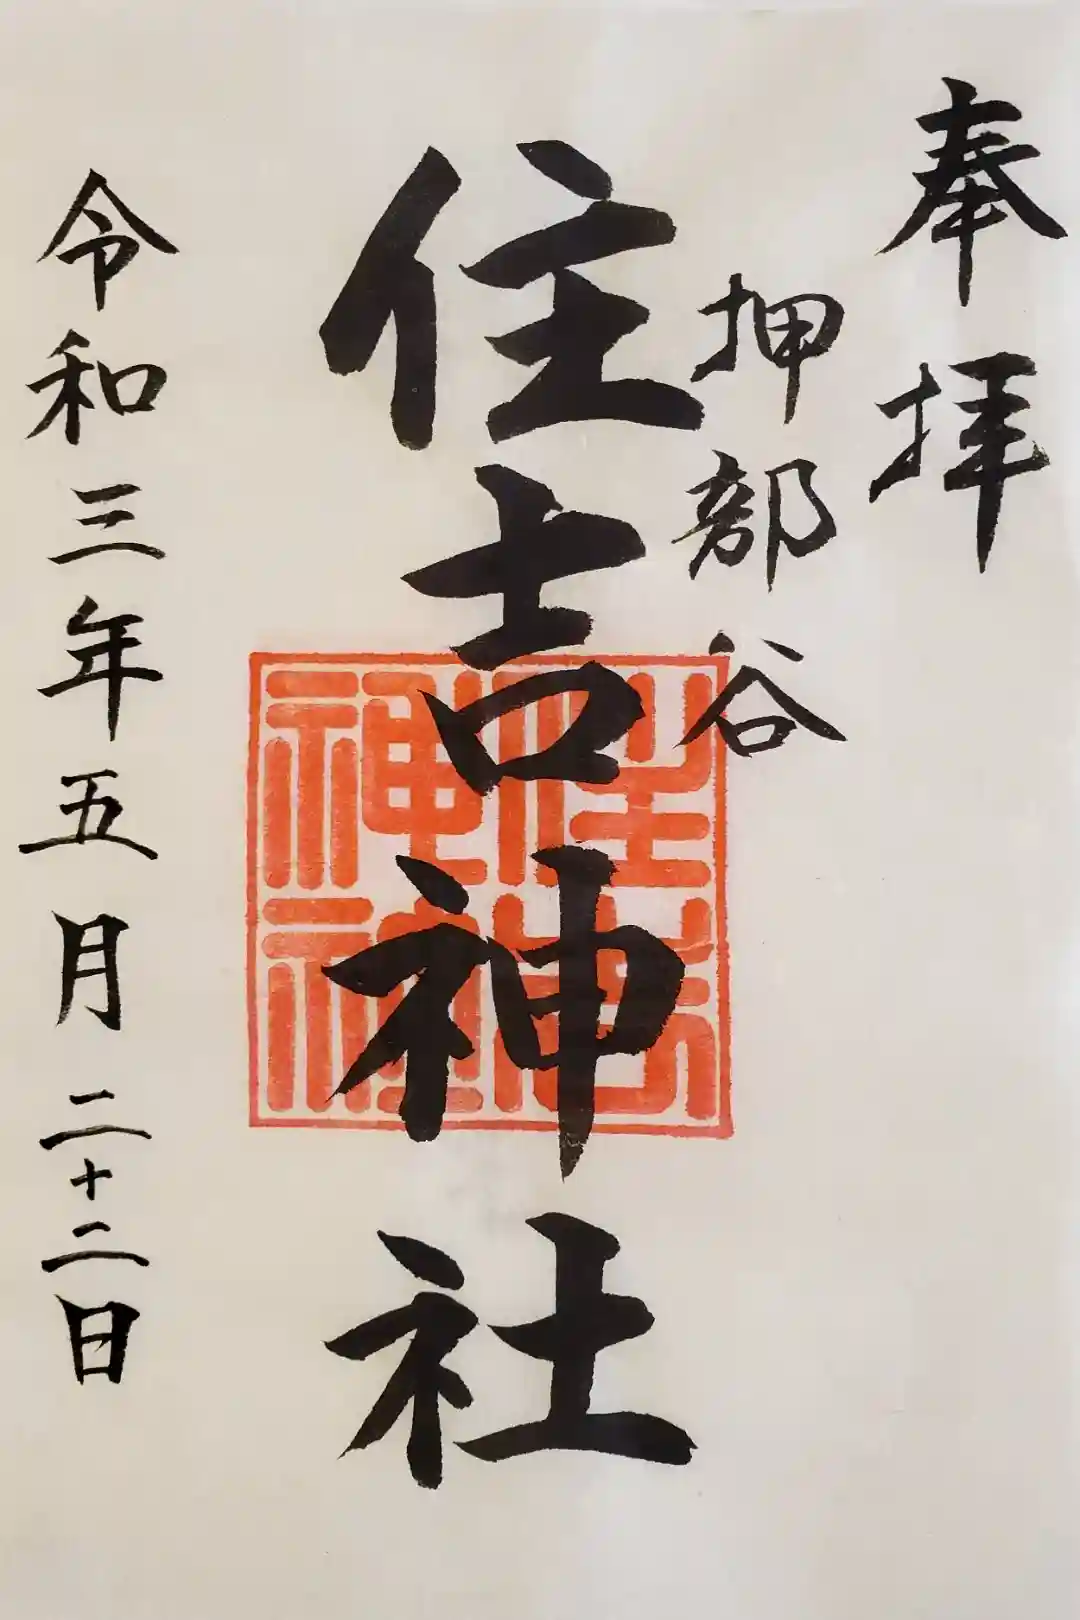 奉拝
押部谷
住吉神社
住吉神社
令和三年五月二十二日